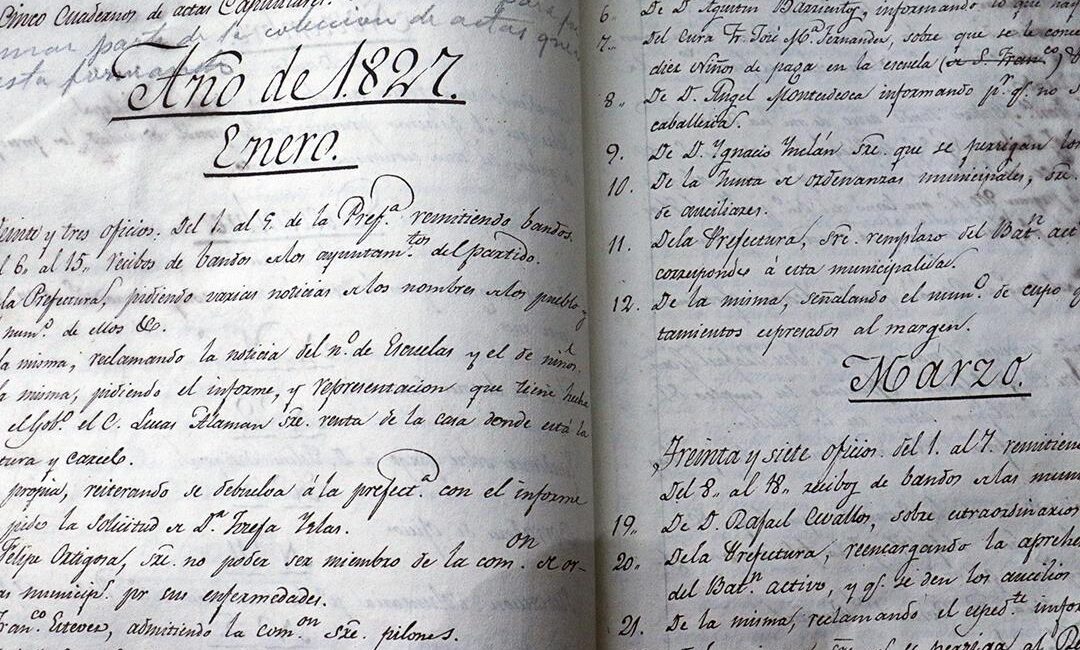 Cinco Cuadernos de actas Capitulares.
mar parte de la coleccion de actas que
esta formando
Año de 1.827.
Enero.
Veinte y tres oficios. Del 1. al 5. de la Prefª remitiendo bandos.
l 6. al 15,, recibos de bandos alos ayuntam.tos del partido.
la Prefectura, pidiendo varias noticias alos nombres alos pueblo y
num.º de ellos &c.
la misma; reclamando la noticia del n.º de Escuelas y el de niñ.s
la misma, pidiendo el informe, y representacion que tiene hecha
el Gob.º el C. Lucas Alaman sre. renta de la casa donde está la
tura y carcel.
propia, reiterando se debuelva á la prefect.ª con el informe
pide la solicitud de D.ª Josefa Islas.
Felipe Ortigosa, sre. no poder ser miembro de la com.on de or-
as municip.s por sus enfermedades.
Fran.co Estevez, admitiendo la com.on sre. pilones.
6. De D. Agustin Barrientos, informando lo que hay
7.. Del Cura Fr. José M.ª Fernandez, sobre que se le conce
diez Niños de paga en la escuela (de S. Fran.co)
8.. De D. Angel Montesdeoca informando p.r q.e no s
caballeria.
9. De D. Ygnacio Ynclán sre. que se persigan los
10. De la Junta de ordenanzas municipales, sre.
de auxiliares.
11. Dela Prefectura, sre. remplazo del Bat.n act
corresponde á esta municipalidad.
12. De la misma, señalando el num.º de cupo
tamientos espresados al margen.
Marzo.
Treinta y siete oficios. del 1. al 7. remitiend
Del 8,, al 18,, recibos de bandos alas muni
19. De D. Rafael Cevallos, sobre extraordinarios
20.. Dela Prefectura, reencargando la aprehe
del Bat.n activo, y q.e se den los auxilios
21. De la misma, reclamando el esped.te infor